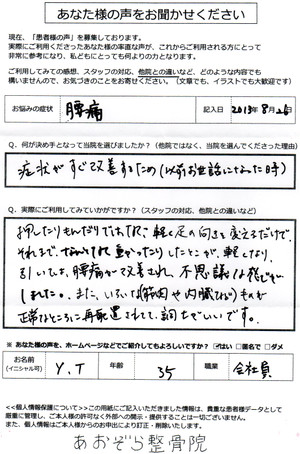 あなた様の声をお聞かせください
現在、「患者様の声」を募集しております。
実際にご利用くださったあなた様の率直な声が、これからご利用される方にとって
非常に参考になり、私どもにとっても何よりの力となります。
ご利用してみての感想、スタッフの対応、他院との違いなど、どのような内容でも
構いませんので、お気づきのことをお寄せください。(文章でも、イラストでも大歓迎です)
お悩みの症状 腰痛 記入日 2013年8月26日
Q. 何が決め手となって当院を選びましたか?(他院ではなく、当院を選んでくださった理由)
症状がすぐ改善するため(以前お世話になった時)
Q. 実際にご利用してみていかがですか?(スタッフの対応、他院との違いなど)
押したりもんだりではなく、軽く足の向きを変えるだけで、
それまで重かったりしたことが、軽くなり、
腰痛が改善され、不思議な
しました。また、いろいろ(筋肉や内臓など)ものが
正常なところに再配置されて、調子がいいです。
※ あなた様の声を、ホームページなどでご紹介してもよろしいですか? はい 匿名で ダメ
お名前 (イニシャル可) Y.T 年齢 35 職業 会社員
<<個人情報保護について>>この用紙にご記入いただきました情報は、貴重な患者様データとして
厳重に管理し、ご本人様の許可なく外部への開示・提供することは一切ございません。
また、個人情報はご本人様からのお申出により訂正・削除いたします。
あおぞら整骨院